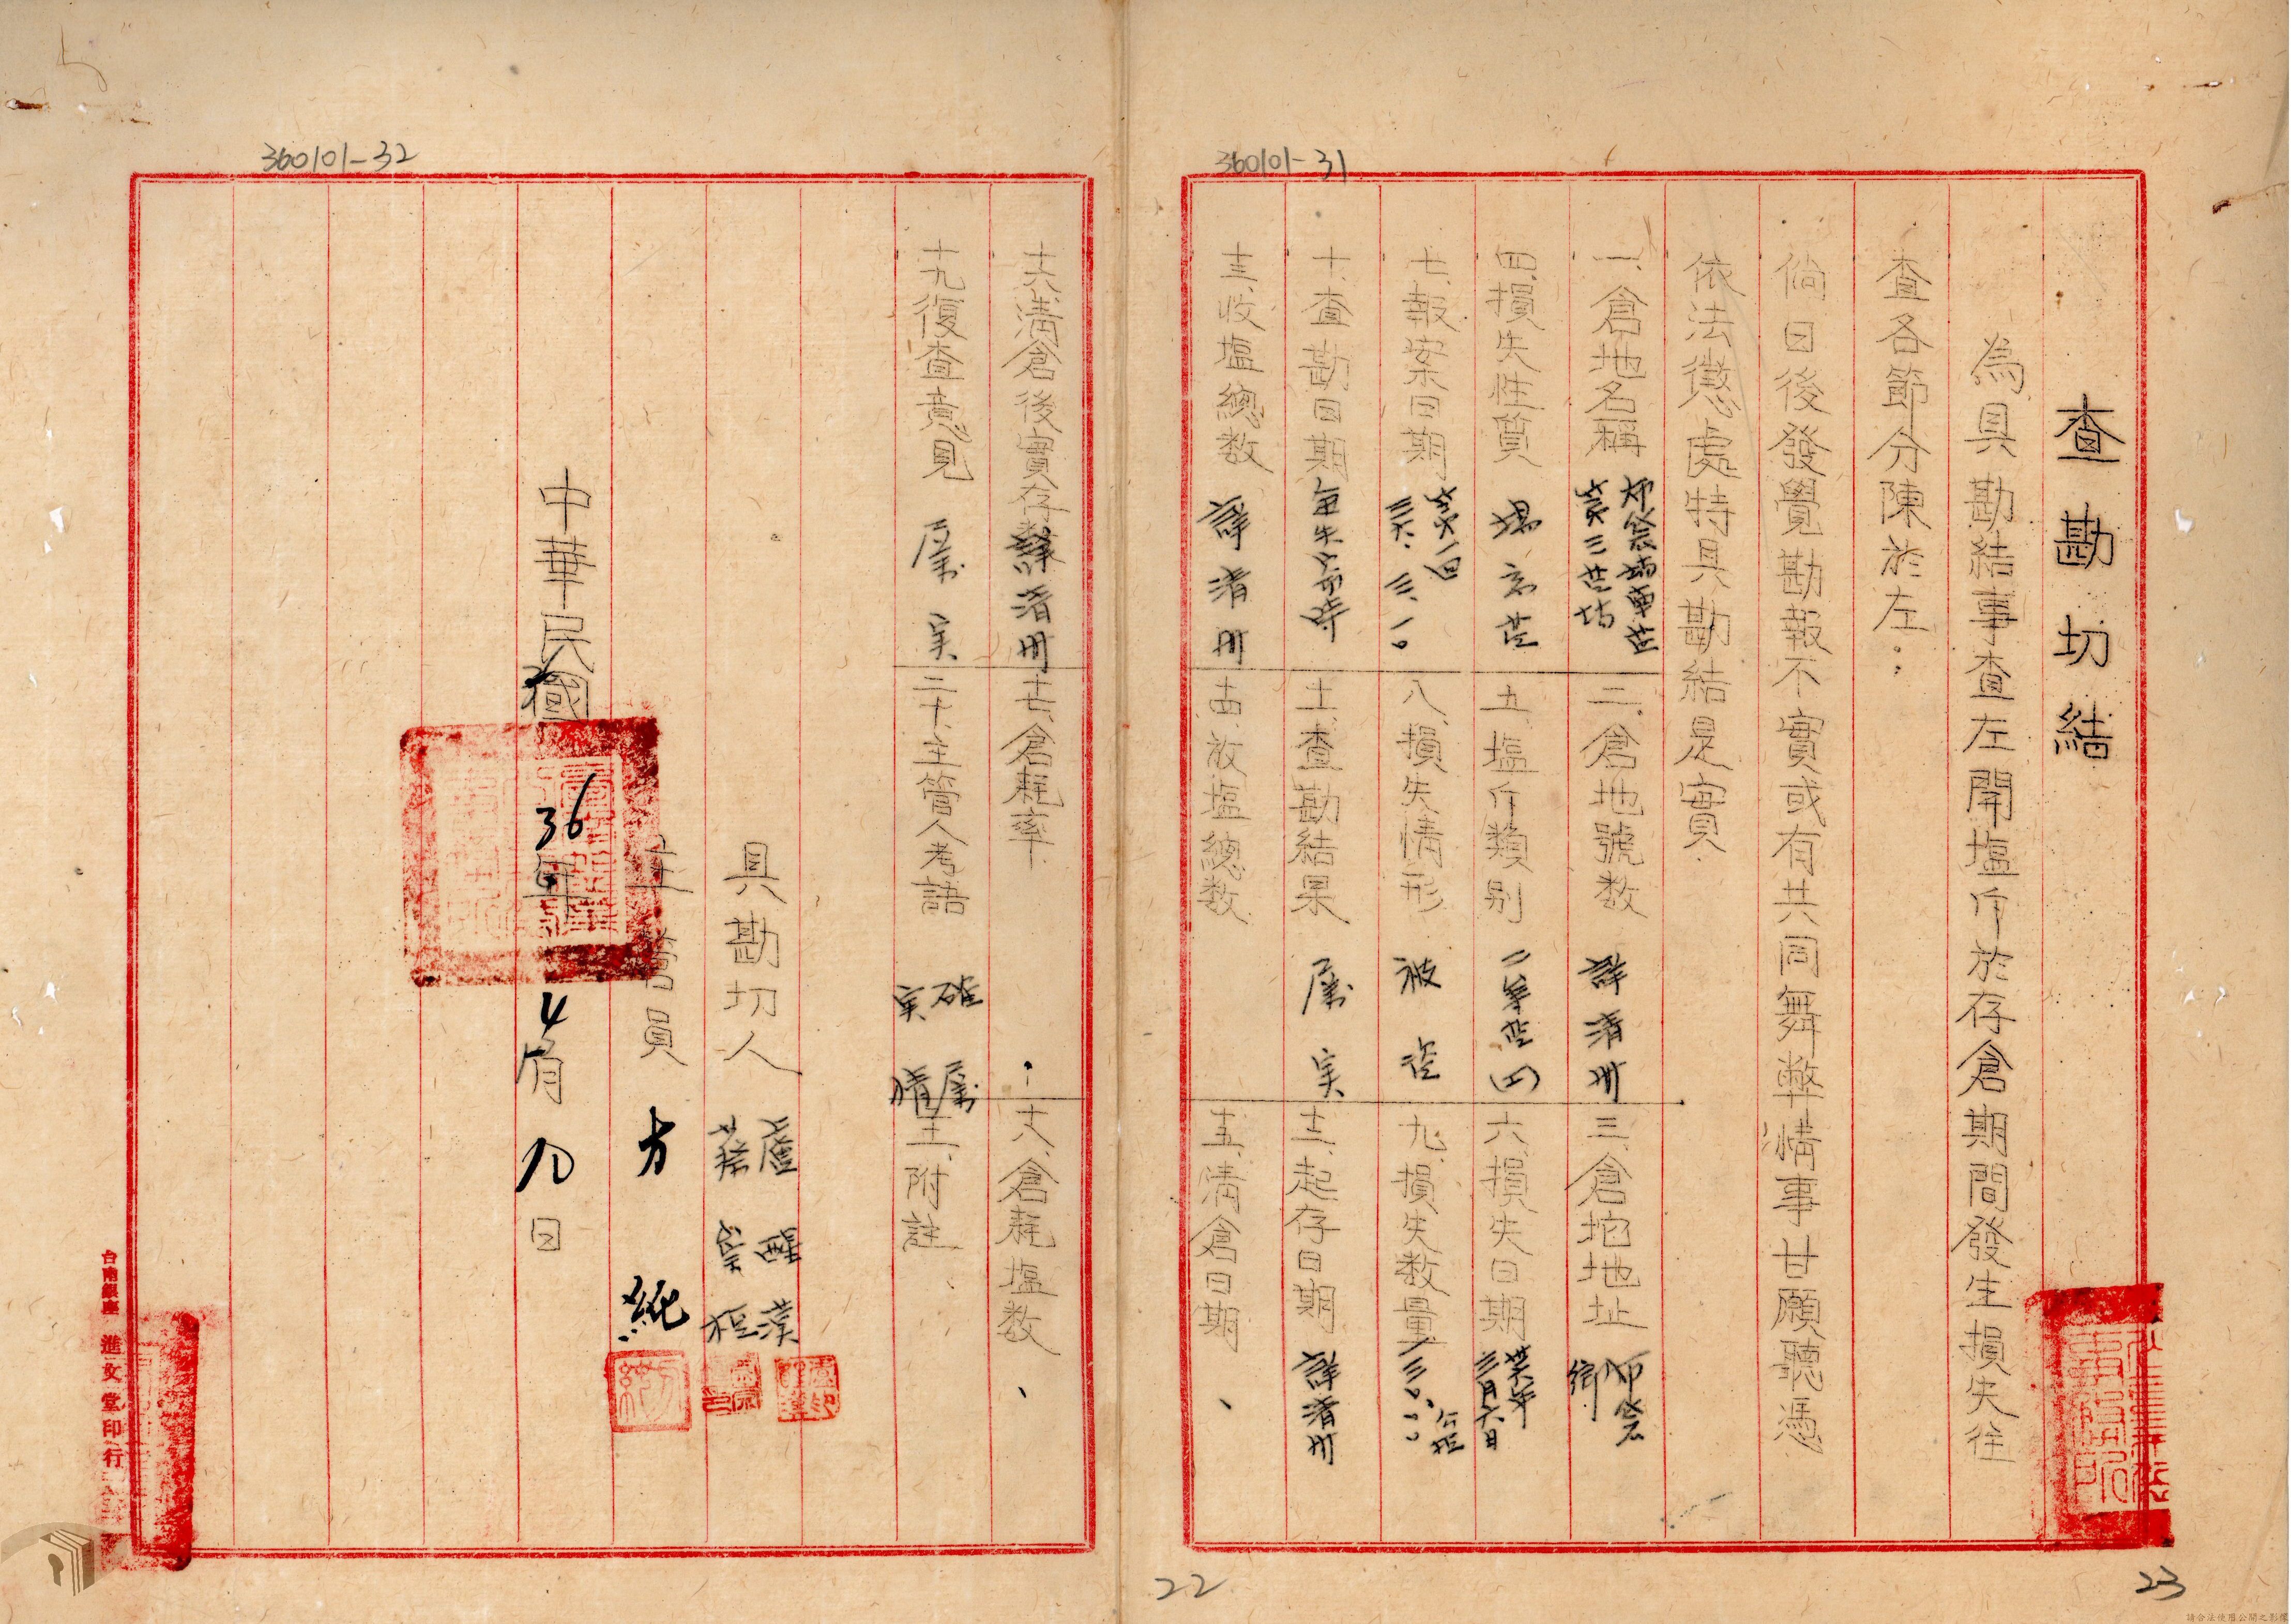 360101-31
查勘切結
為具勘結事查左開塩斤於存倉期間發生損失往
查各節分陳於左：
倘日後發覺勘報不實或有共同舞弊情事甘願聽憑
依法懲處特具勘結是實
一、倉地名稱
二、倉地號数 詳清册
三、倉坨地址
四、損失性質
五、塩斤類别
六、損失日期 三月六日
七、報案日期 三六、三、一〇
八、損失情形 被盗
九、損失数量
十、查勘日期
十一、查勘結果 属实
十二、起存日期 詳清册
十三、收塩總数 詳清册
十四、放塩總数
十五、清倉日期、
23
360101-32
十六、清倉後實存数 詳清册
十七、倉耗率
十八、倉耗塩数、
十九、復查意見 属实
二十、主管人考語 確属实情
二十一、附註
具勘切人 盧醒漢
主管員 方純
中華民國36年4月九日
台南銀座 進文堂印行
22
請合法使用公開之影像